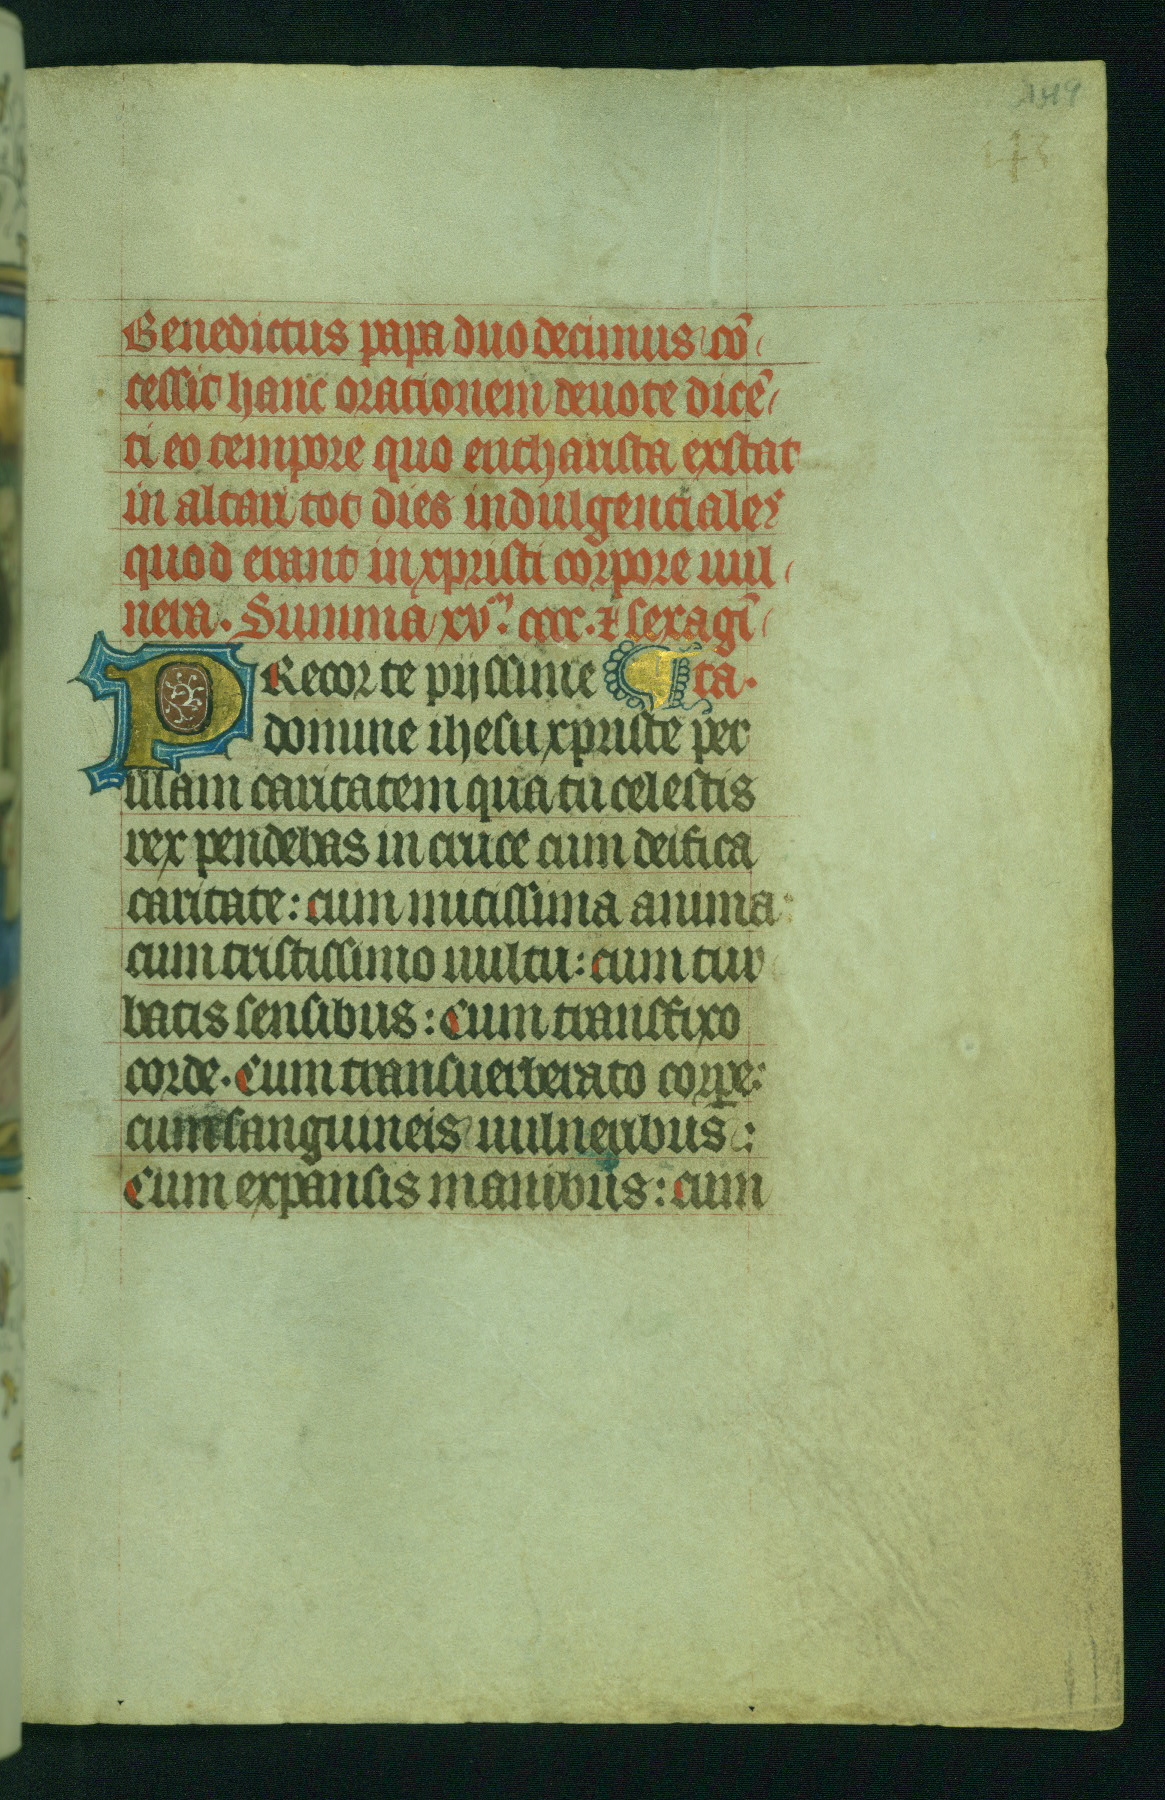 Benedictus papa duodecimus cō
cessit hanc orationem deuote dicē
ti eo tempore quo eucharista exstat
in altari tot dies indulgenciales
quod erant in xpristi corpore uul
nera. Summa xvᵐ. ccc. ⁊ sexagī
PRecor te pijssime ¶ ta.
domine ihesu xpriste per
illam caritatem qua tu celestis
rex pendebas in cruce cum deifica
caritate: cum mitissima anima:
cum tristissimo uultu: cum tur
batis sensibus: Cum transfixo
corde. Cum transuerberato corꝑe:
cum sanguineis uulneribus:
Cum expansis manibus: cum